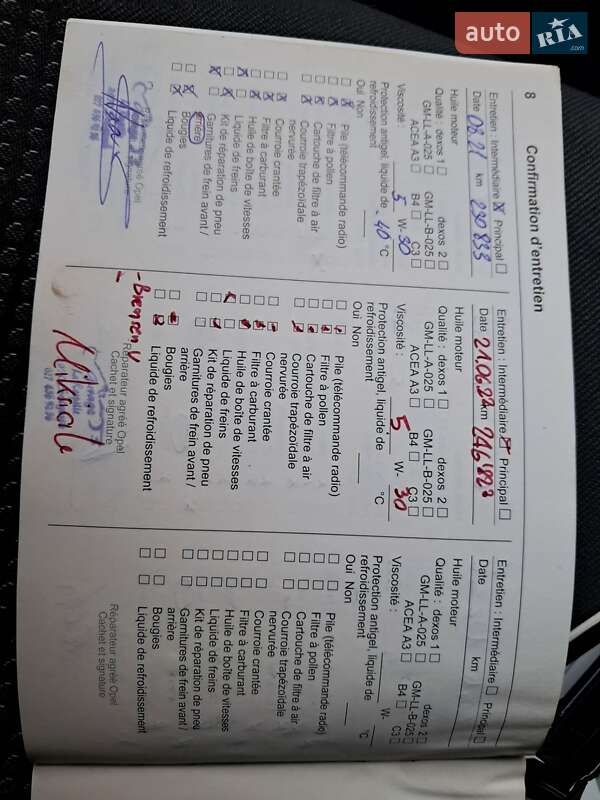 auto RIA .com
8
Confirmation d'entretien
Entretien : Intermédiaire X Principal
Date 08.21 km 230 833
Huile moteur
Qualité : dexos 1 dexos 2
GM-LL-A-025 GM-LL-B-025
ACEA A3 B4 C3
Viscosité : 5 W- 30
Protection antigel, liquide de
refroidissement -40 °C
Oui Non
Pile (télécommande radio)
Filtre à pollen
Cartouche de filtre à air
Courroie trapézoïdale
nervurée
Courroie crantée
Filtre à carburant
Huile de boîte de vitesses
Liquide de freins
Kit de réparation de pneu
Garnitures de frein avant /
arrière
Bougies
Liquide de refroidissement
Entretien : Intermédiaire Principal
Date 21.06.22 km 246 823
Huile moteur
Qualité : dexos 1 dexos 2
GM-LL-A-025 GM-LL-B-025
ACEA A3 B4 C3
Viscosité : 5 W- 30
Protection antigel, liquide de
refroidissement °C
Oui Non
Pile (télécommande radio)
Filtre à pollen
Cartouche de filtre à air
Courroie trapézoïdale
nervurée
Courroie crantée
Filtre à carburant
Huile de boîte de vitesses
Liquide de freins
Kit de réparation de pneu
Garnitures de frein avant /
arrière
Bougies
Liquide de refroidissement
Réparateur agréé Opel
Cachet et signature
Entretien : Intermédiaire Principal
Date km
Huile moteur
Qualité : dexos 1 dexos 2
GM-LL-A-025 GM-LL-B-025
ACEA A3 B4 C3
Viscosité : W-
Protection antigel, liquide de
refroidissement °C
Oui Non
Pile (télécommande radio)
Filtre à pollen
Cartouche de filtre à air
Courroie trapézoïdale
nervurée
Courroie crantée
Filtre à carburant
Huile de boîte de vitesses
Liquide de freins
Kit de réparation de pneu
Garnitures de frein avant /
arrière
Bougies
Liquide de refroidissement
Réparateur agréé Opel
Cachet et signature